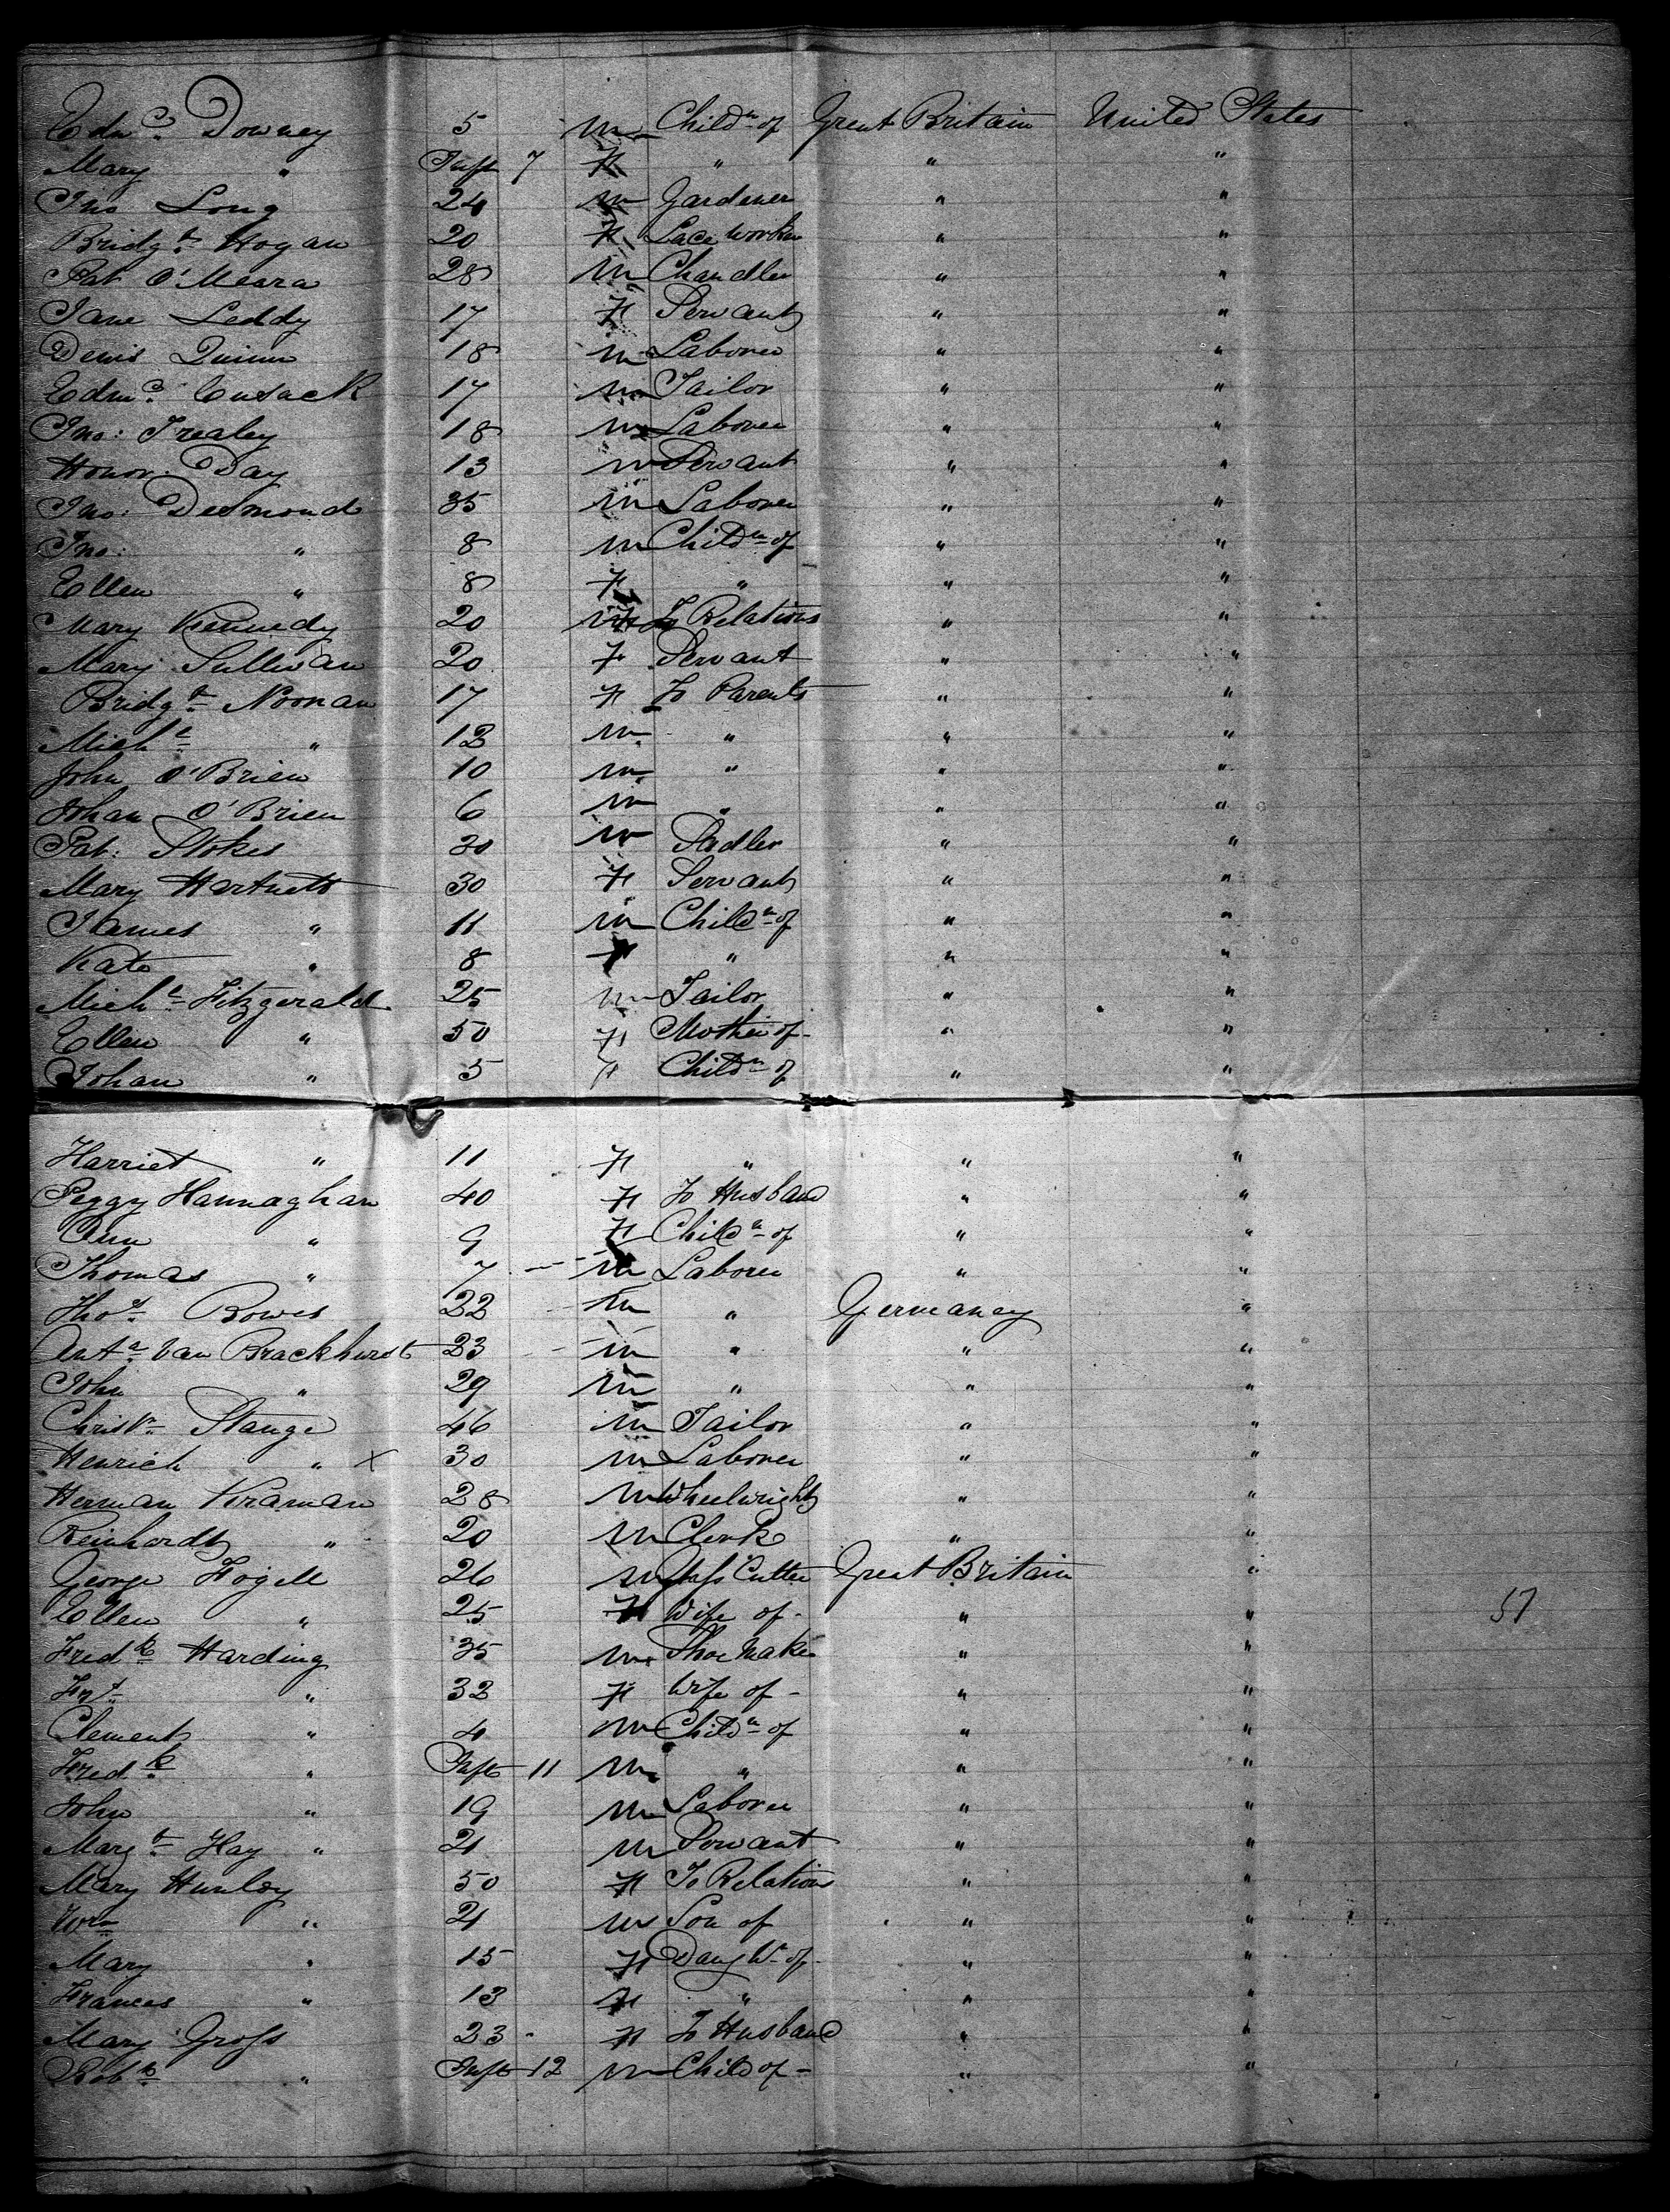 Edwd. Downey 5 m Childn of Great Britain United States
Mary " Inft 7 F " " "
Jno Long 24 m Gardener " "
Bridgt. Hogan 20 F Lace Worker " "
Pat O'Meara 28 m Chandler " "
Jane Leddy 17 F Servant " "
Denis Quinn 18 m Laborer " "
Edmd. Cusack 17 m Tailor " "
Jno: Trealey 18 m Laborer " "
Honor. Day 13 m Servant " "
Jno: Desmond 35 m Laborer " "
Jno: " 8 m Childn of " "
Ellen " 8 F " " "
Mary Kennedy 20 F To Relations " "
Mary Sullivan 20 F Servant " "
Bridgt Noonan 17 F To Parents " "
Michl " 12 m " " "
John O'Brien 10 m " " "
Johan O'Brien 6 m " " "
Pat: Stokes 30 m Sadler " "
Mary Hartnett 30 F Servant " "
James " 11 m Childn of " "
Kate " 8 F " " "
Michl Fitzgerald 25 m Tailor " "
Ellen " 50 F Mother of " "
Johan " 5 F Childn of " "
Harriet " 11 F " " "
Peggy Hannaghan 40 F To Husband " "
Ann " 9 F Childn of " "
Thomas " 7 m Laborer " "
Thos Bowes 22 m " Germaney "
Anta Van Brackhurst 23 m " " "
John " 29 m " " "
Christn Stange 46 m Tailor " "
Henrich " x 30 m Laborer " "
Herman Kraman 28 m Wheelwright " "
Reinhardt " 20 m Clerk " "
George Fogell 26 m Glass Cutter Great Britain "
Ellen " 25 F Wife of " " 57
Fredk Harding 35 m Shoe Maker " "
" 32 F Wife of " "
Clement " 4 m Childn of " "
Fredk " Inft 11 m " " "
John " 19 m Laborer " "
Margt Hay " 21 m Servant " "
Mary Hurley 50 F To Relations " "
Wm " 21 m Son of " "
Mary " 15 F Daughtr of " "
Frances " 13 F " " "
Mary Gross 23 F To Husband " "
Robt " Inft 12 m Child of " "